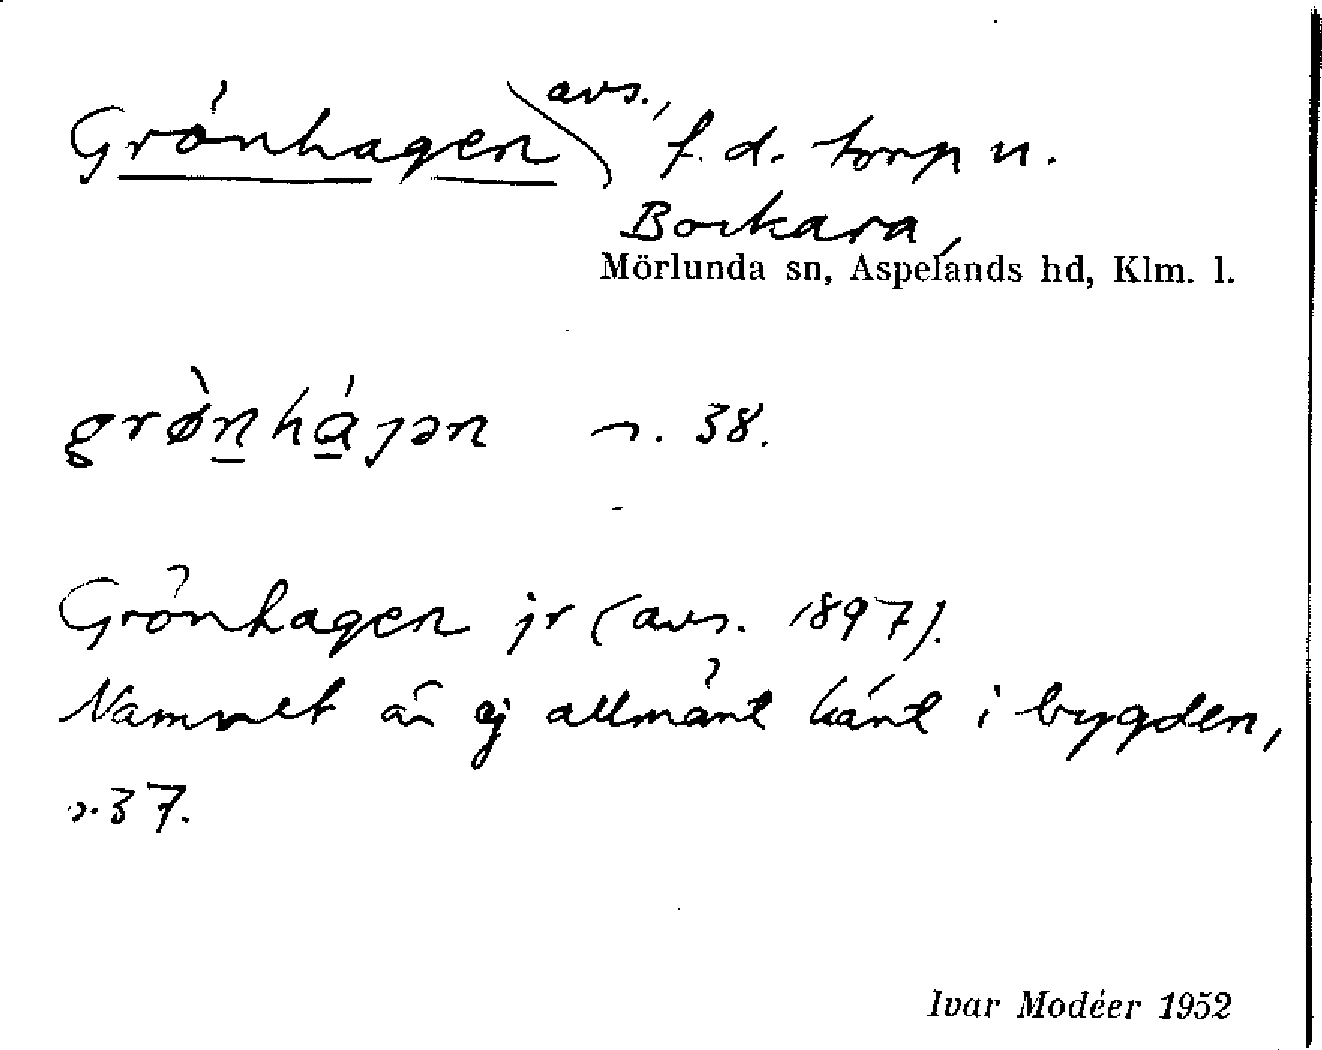 Grönhagen avs., f. d. torp u.
Bockara,
Mörlunda sn, Aspelands hd, Klm. l.
grø̀n̲há̲ɟən s. 38.
Grönhagen jr (avs. 1897).
Namnet är ej allmänt känt i bygden,
s. 37.
Ivar Modéer 1952